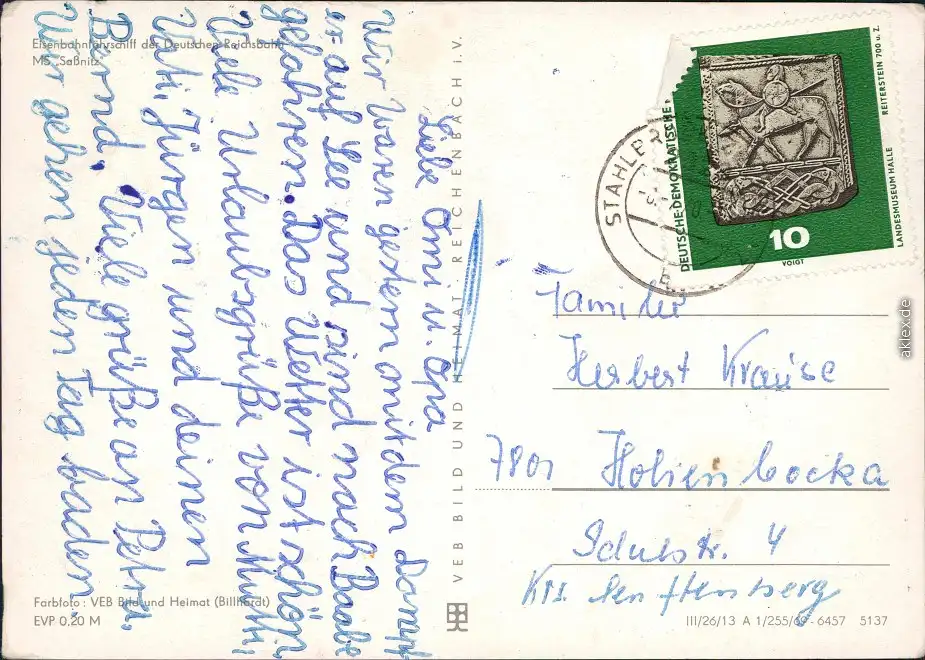 Eisenbahnfährschiff der Deutschen Reichsbahn
MS „Saßnitz“
Liebe Omi u. Opa
Wir waren gestern mit dem Dampf
er auf See und sind nach Baabe
gefahren. Das Wetter ist schön.
Viele Urlaubsgrüße von Mutti,
Vati, Jürgen und deinen
Bernd, Viele grüße an Petra.
Wir gehen jeden Tag baden.
Farbfoto: VEB Bild und Heimat (Billhardt)
EVP 0.20 M
VEB BILD UND HEIMAT, REICHENBACH i. V.
STAHLBR
DEUTSCHE DEMOKRATISCHE
10
VOIGT
LANDESMUSEUM HALLE
REITERSTEIN 700 u. Z.
Familie
Herbert Krause
7801 Hohenbocka
Schulstr. 4
Krs Senftenberg
III/26/13 A 1/255/69 - 6457 5137
aklex.de